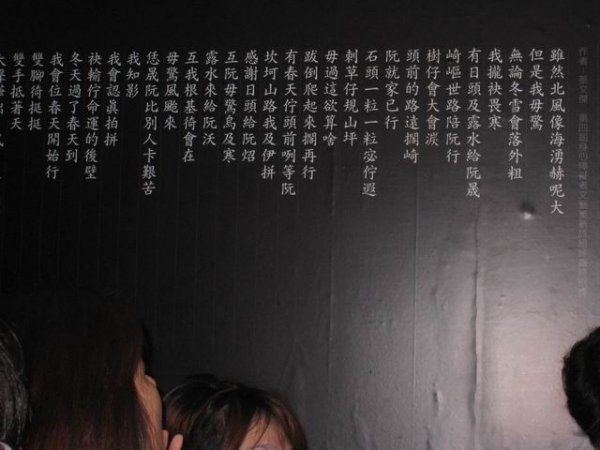 作者：蔡文傑 第四屆身心障礙者文藝獎
雖然北風像海湧赫呢大
但是我毋驚
無論冬雪會落外粗
我攏袂畏寒
有日頭及露水給阮晟
崎嶇世路陪阮行
樹仔會大會湠
頭前的路遠擱崎
阮就家己行
石頭一粒一粒宓佇遐
刺草仔規山坪
毋過這欲算啥
跋倒爬起來擱再行
有春天佇頭前咧等阮
坎坷山路我及伊拼
感謝日頭給阮炤
互阮毋驚烏及寒
露水來給阮沃
互我根基待會在
毋驚風颱來
恁晟阮比別人卡艱苦
我知影
我會認真拍拼
袂輸佇命運的後壁
冬天過了春天到
我會位春天開始行
雙腳徛挺挺
雙手抵著天